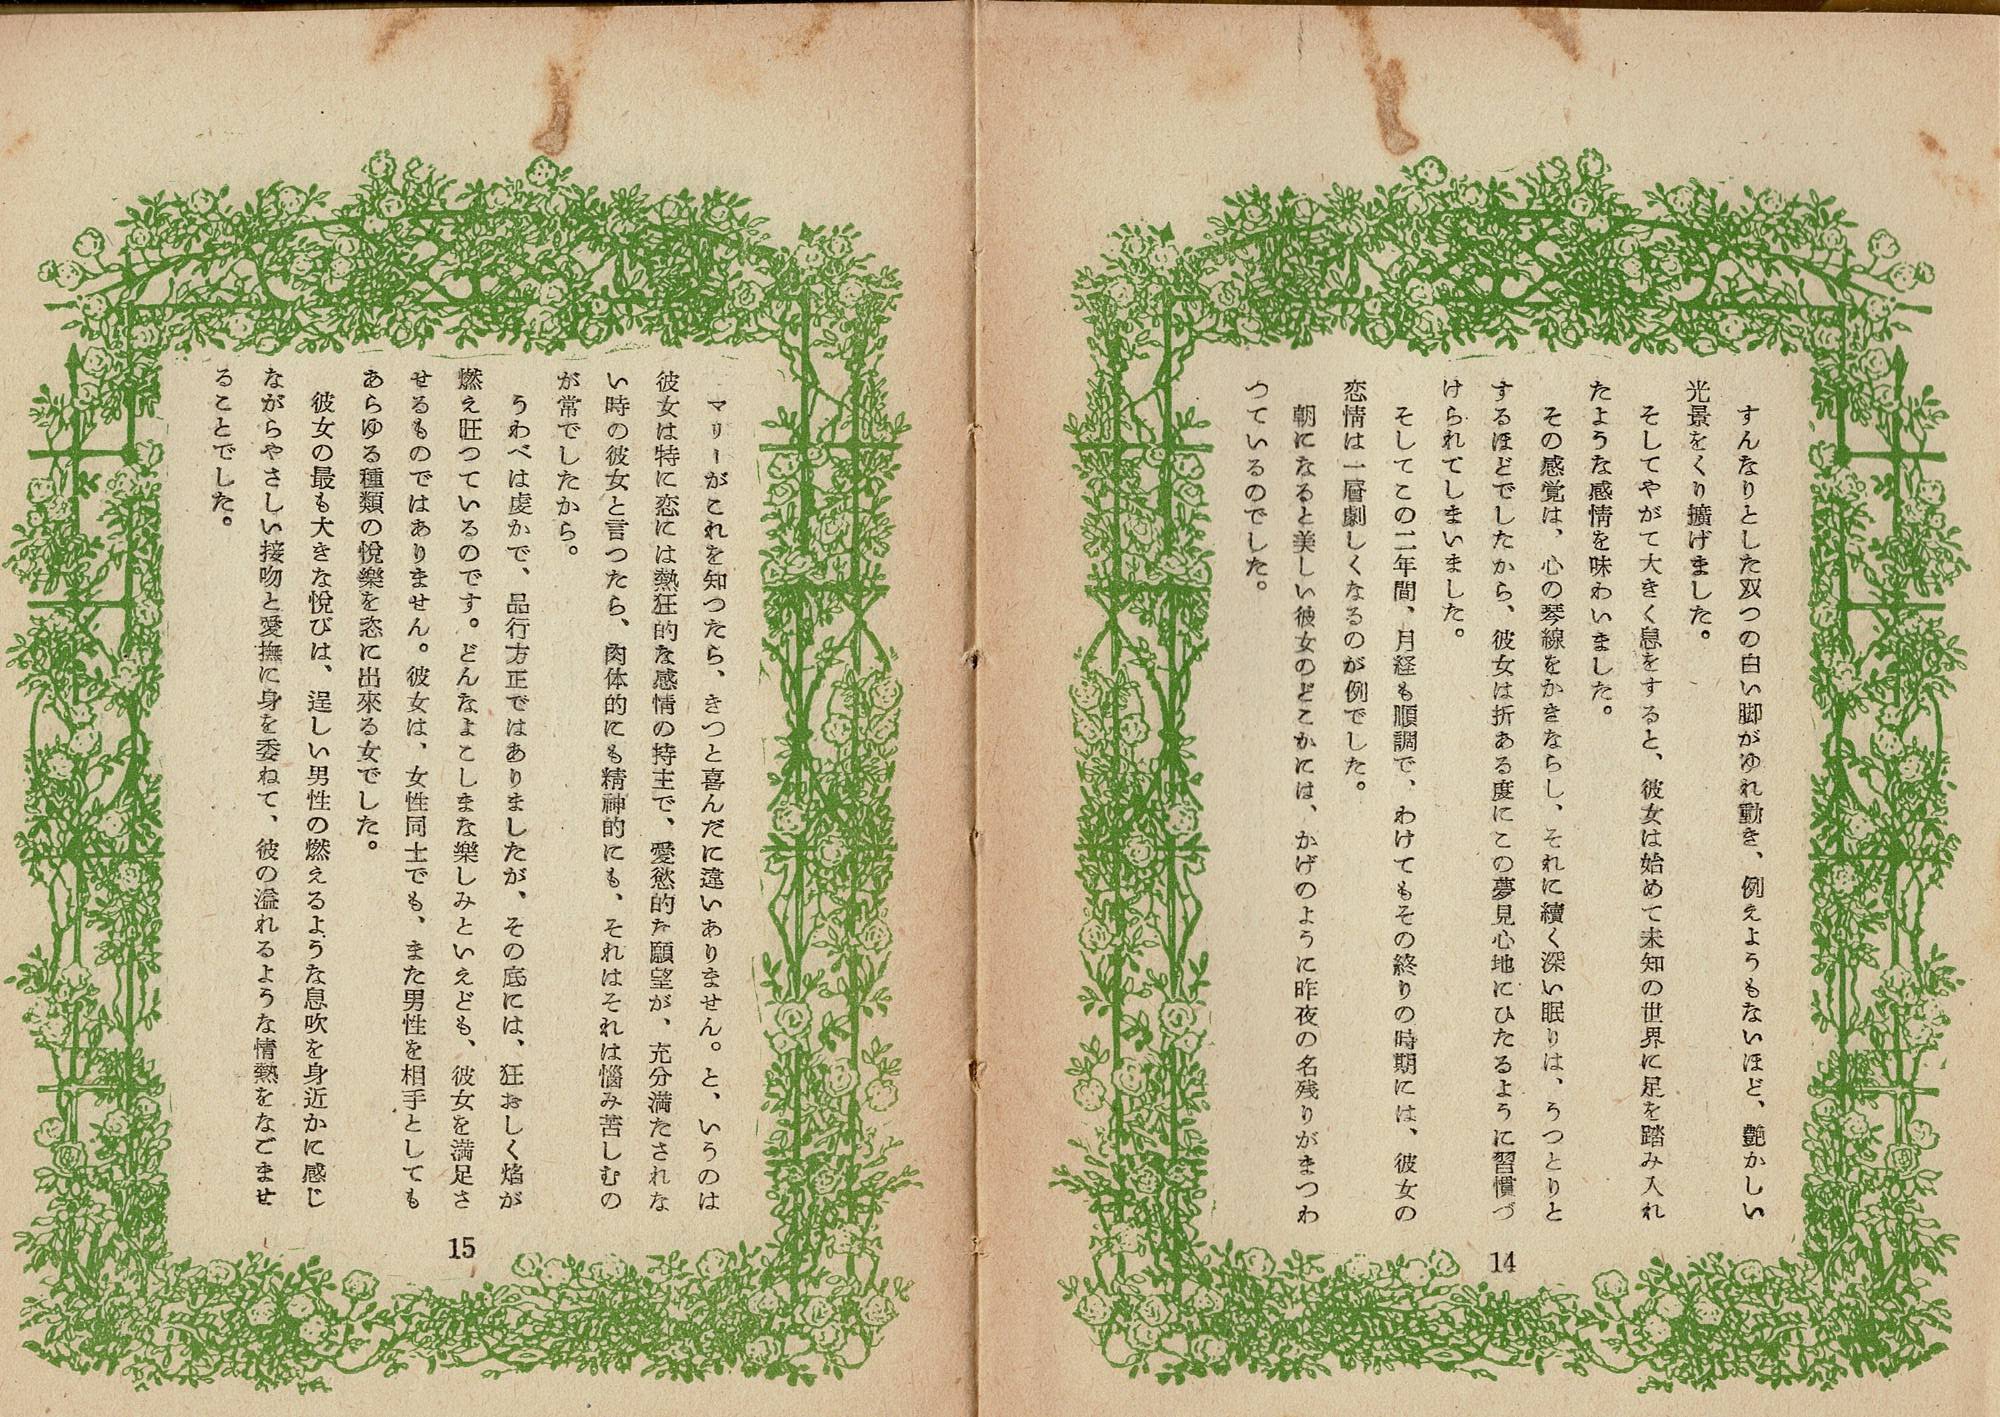 すんなりとした双つの白い脚がゆれ動き、例えようもないほど、艶かしい
光景をくり擴げました。
そしてやがて大きく息をすると、彼女は始めて未知の世界に足を踏み入れ
たような感情を味わいました。
その感覚は、心の琴線をかきならし、それに續く深い眠りは、うつとりと
するほどでしたから、彼女は折ある度にこの夢見心地にひたるように習慣づ
けられてしまいました。
そしてこの二年間、月経も順調で、わけてもその終りの時期には、彼女の
恋情は一層劇しくなるのが例でした。
朝になると美しい彼女のどこかには、かげのように昨夜の名残りがまつわ
つているのでした。
14
マリーがこれを知つたら、きつと喜んだに違いありません。と、いうのは
彼女は特に恋には熱狂的な感情の持主で、愛慾的な願望が、充分満たされな
い時の彼女と言つたら、肉体的にも精神的にも、それはそれは悩み苦しむの
が常でしたから。
うわべは虔かで、品行方正ではありましたが、その底には、狂おしく焔が
燃え旺つているのです。どんなよこしまな樂しみといえども、彼女を満足さ
せるものではありません。彼女は、女性同士でも、また男性を相手としても
あらゆる種類の悦樂を恣に出來る女でした。
彼女の最も大きな悦びは、逞しい男性の燃えるような息吹を身近かに感じ
ながらやさしい接吻と愛撫に身を委ねて、彼の溢れるような情熱をなごませ
ることでした。
15